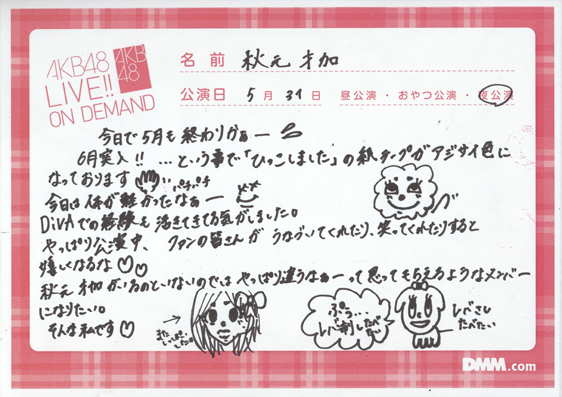 AKB48
LIVE!!
ON DEMAND
AKB
48
名前 秋元 才加
公演日 5月31日 昼公演・おやつ公演・夜公演
今日で5月も終わりかぁー
6月突入!! …という事で「ひっこしました」の紙テープがアジサイ色に
なっております
パチパチ
今日は体が軽かったなぁー
DiVAでの経験も活きてきてる気がしました。
やっぱり公演中、ファンの皆さんがうなづいてくれたり、笑ってくれたりすると
嬉しくなるな♡♡
秋元才加がいるのといないのではやっぱり違うなぁーって思ってもらえるようなメンバー
になりたい。
そんな私です♡
ぷぅ…
レバ刺したべたい
レバさし
たべたい
DMM.com